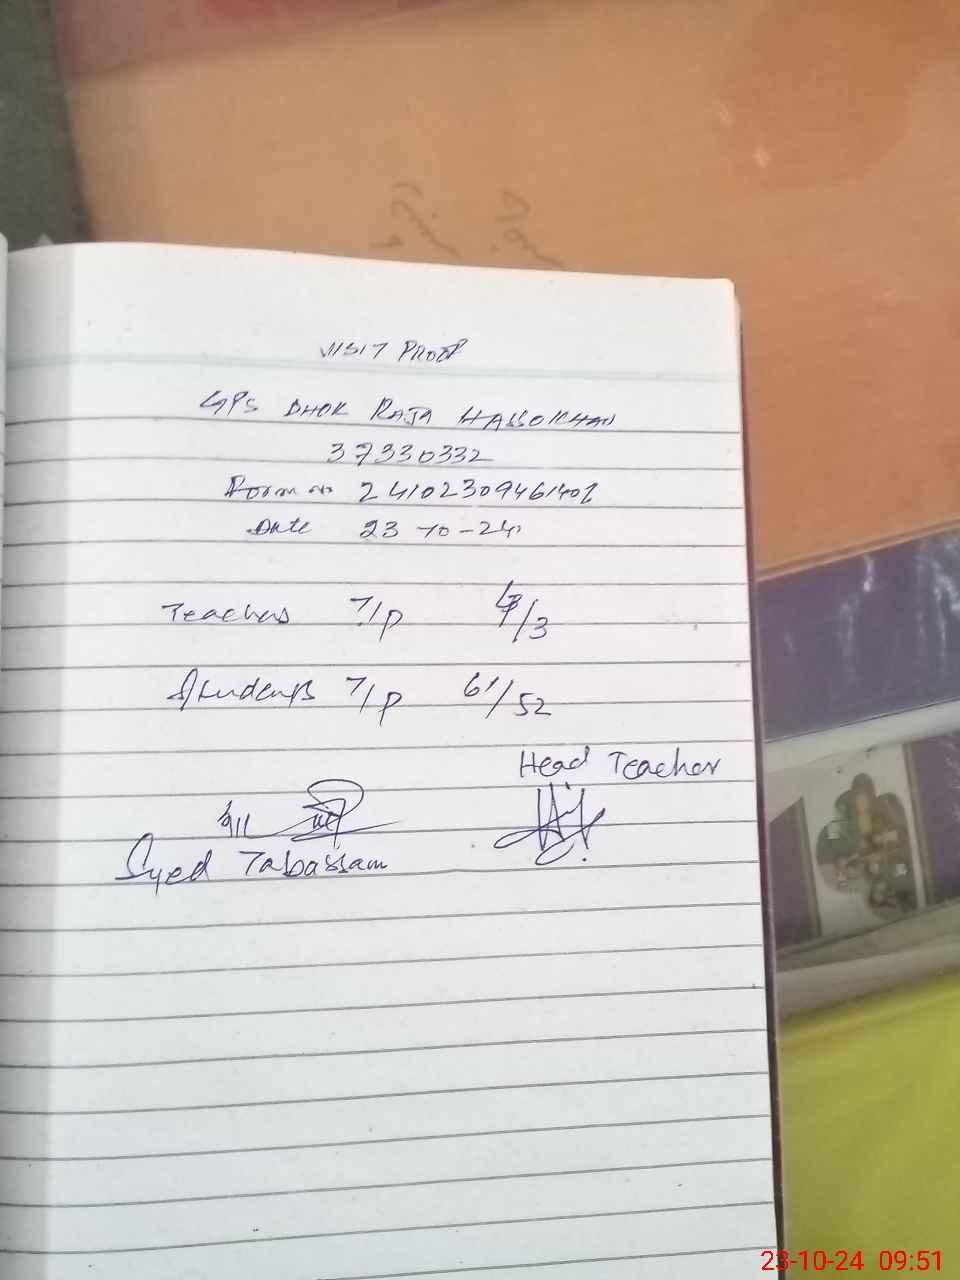 VISIT PROOF
GPS DHOK RAJA HASSO KHAN
37330332
Form no 24102309461401
Date 23-10-24
Teachers T/P /3
Students T/P 61/52
Head Teacher
Syed Tabassam
23-10-24 09:51